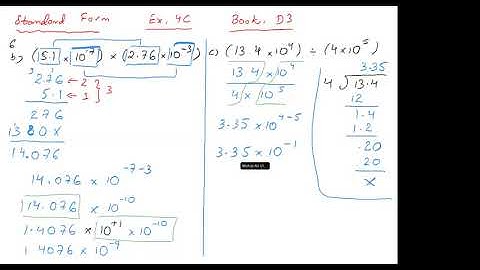 Standard Form Ex. 4C Book. D3
6
b) (5.1 × 10^-7) × (2.76 × 10^-3)
2.76 ← 2
5.1 ← 1
3
276
1380X
14.076
14.076 × 10^-7-3
14.076 × 10^-10
1.4076 × 10^+1 × 10^-10
1.4076 × 10^-9
c) (13.4 × 10^4) ÷ (4 × 10^5)
13.4 × 10^4
4 × 10^5
3.35 × 10^4-5
3.35 × 10^-1
3.35
4 13.4
12
1.4
1.2
.20
.20
x